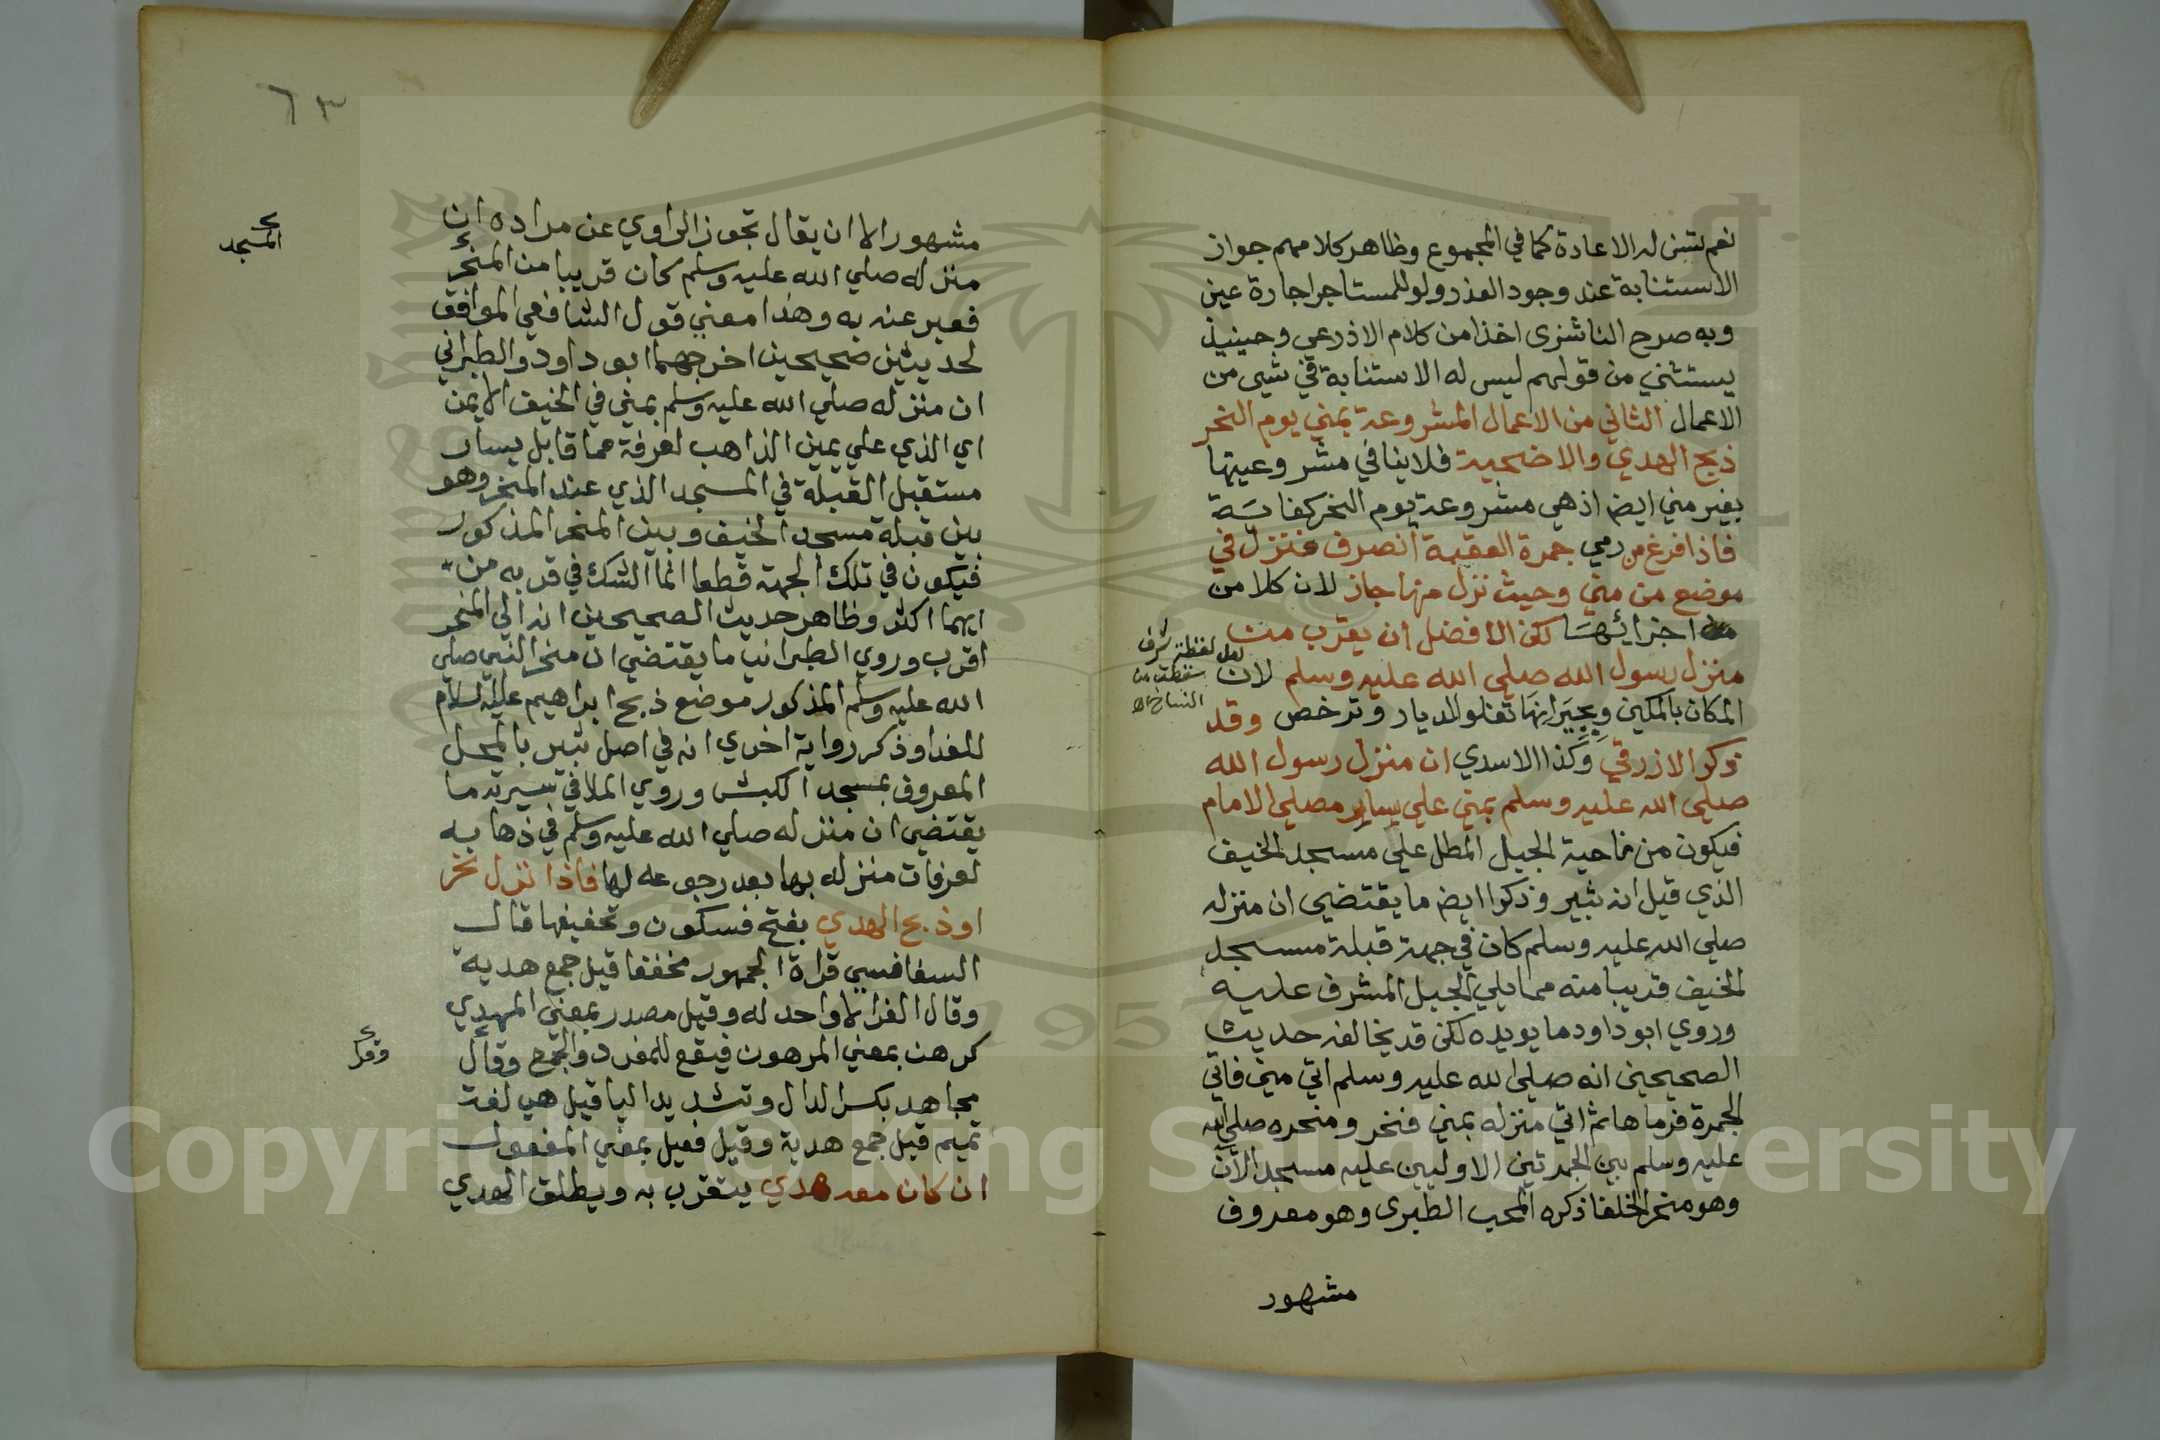 نعم تسن له الاعادة كما في المجموع وظاهر كلامهم جواز
الاستنابة عند وجود العذر ولو للمستاجر اجارة عين
وبه صرح الناشزى اخذا من كلام الاذرعي وحينيذ
يستثني من قولهم ليس له الاستنابة في شي من
الاعمال الثاني من الاعمال المشروعة بمني يوم النحر
ذبح الهدي والاضحية فلا ينافي مشروعيتها
بغير مني ايضا اذ هي مشروعة يوم النحر كفاية
فاذا فرغ من رمي جمرة العقبة انصرف فنزل في
موضع من مني وحيث نزل منها جاز لان كلا من
اجزائها لكن الافضل ان يقرب من
منزل رسول الله صلي الله عليه وسلم لان
لعل لفظة شرف
سقطت من
النساخ اه
المكان بالمكين وبجيرانها تغلو الديار وترخص وقد
ذكر الازرقي وكذا الاسدي ان منزل رسول الله
صلي الله عليه وسلم بمني علي يسار مصلي الامام
فيكون من ناحية الجبل المطل علي مسجد الخيف
الذي قيل انه ثبير وذكرا ايضا ما يقتضي ان منزله
صلي الله عليه وسلم كان في جهة قبلة مسجد
الخيف قريبا منه مما يلي الجبل المشرف عليه
وروي ابو داود ما يويده لكن قد يخالفه حديث
الصحيحين انه صلي الله عليه وسلم اتي مني فاتي
الجمرة فرماها ثم اتي منزله بمني فنحر ومنحره صلي الله
عليه وسلم بين الجمرتين الاوليين عليه مسجد الآن
وهو منحر الخلفا ذكره المحب الطبرى وهو معروف
مشهور
٦٣
مشهور الا ان يقال تجوز الراوي عن مراده ان
منزله صلي الله عليه وسلم كان قريبا من المنحر
المسجد
فعبر عنه به وهذا معني قول الشافعي الموافق
لحديثين صحيحين اخرجهما ابو داود والطبراني
ان منزله صلي الله عليه وسلم بمني في الخيف الايمن
اي الذي علي يمين الذاهب لعرفة مما قابل يسار
مستقبل القبلة في المسجد الذي عند المنحر وهو
بين قبلة مسجد الخيف وبين المنحر المذكور
فيكون في تلك الجهة قطعا انما الشك في قربه من
ايهما اكثر وظاهر حديث الصحيحين انه الي المنحر
اقرب وروي الطبراني ما يقتضي ان منحر النبي صلي
الله عليه وسلم المذكور موضع ذبح ابراهيم عليه السلام
للفدا وذكر رواية اخري انه في اصل ثبير بالمحل
المعروف بمسجد الكبش وروي الملا في سيرته ما
يقتضي ان منزله صلي الله عليه وسلم في ذهابه
لعرفات منزله بها بعد رجوعه لها فاذا نزل نحر
او ذبح الهدي بفتح فسكون وتخفيفها قال
السفاقسي قراة الجمهور مخففا قيل جمع هدية
وقال الفرا لا واحد له وقيل مصدر بمعني المهدي
كرهن بمعني المرهون فيقع للمفرد والجمع وقال
وقرأ
مجاهد بكسر الدال وتشديد اليا قيل هي لغة
تميم قيل جمع هدية وقيل فعيل بمعني المفعول
ان كان معه هدي يتقرب به ويطلق الهدي
1957
Copyright © King Saud University